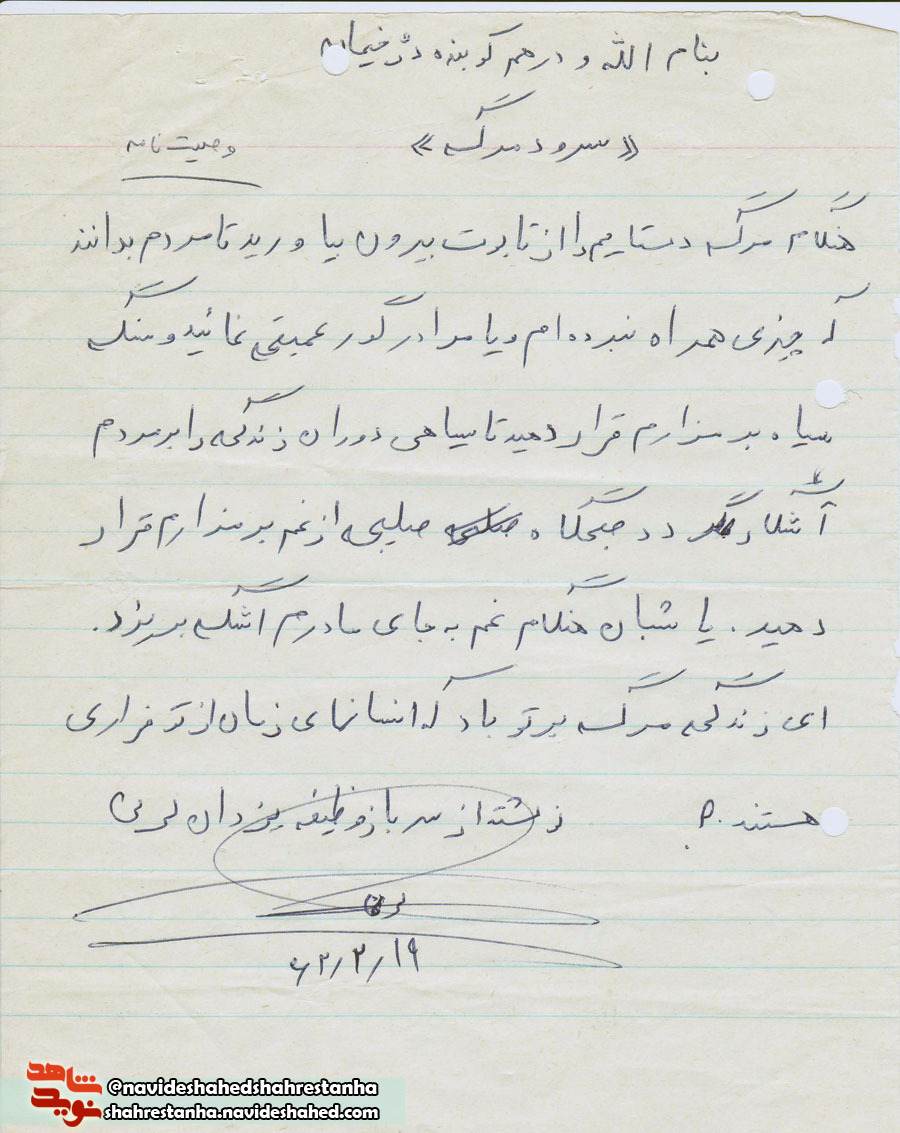 بنام الله و درهم کوبنده دژخیمان
«سرود مرگ»
وصیت نامه
هنگام مرگ دستایم را از تابوت بیرون بیاورید تا مردم بدانند
که چیزی همراه نبرده ام و یا مرا در گور عمیقی نمائید و سنگ
سیاه بر مزارم قرار دهید تا سیاهی دوران زندگی را بر مردم
آشکار گردد صبحگاه صلیبی از غم بر مزارم قرار
دهید. یا شبان هنگام غم به جای مادرم اشک بریزد.
ای زندگی مرگ بر تو باد که انسانهای زمان از تو فراری
هستند.
نوشته از سرباز وظیفه یزدان
۶۲/۲/۱۹
شاهد
نوید
@navideshahedshahrestanha
shahrestanha.navideshahed.com